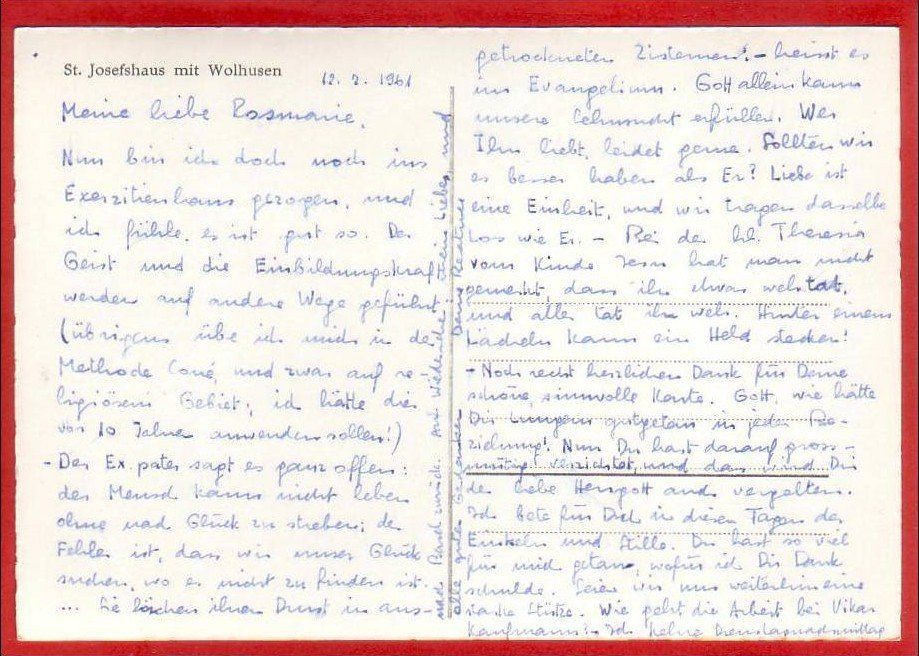 St. Josefshaus mit Wolhusen
12. 2. 1961
Meine liebe Rosmarie,
Nun bin ich doch noch ins
Exerzitienhaus gezogen, und
ich fühle, es ist gut so. Der
Geist und die Einbildungskraft
werden auf andere Wege geführt
(übrigens übe ich mich in der
Methode Coué, und zwar auf re-
ligiösem Gebiet; ich hätte dies
vor 10 Jahren anwenden sollen!)
- Der Ex.pater sagt es ganz offen:
der Mensch kann nicht leben
ohne nach Glück zu streben; der
Fehler ist, dass wir unser Glück
suchen, wo es nicht zu finden ist.
... Sie löschen ihren Durst in aus-
getrockneten Zisternen! - heisst es
im Evangelium. Gott allein kann
unsere Sehnsucht erfüllen. Wer
Ihn liebt, leidet gerne. Sollten wir
es besser haben als Er? Liebe ist
eine Einheit, und wir tragen dasselbe
Los wie Er. - Bei der hl. Theresia
vom Kinde Jesu hat man nicht
gemerkt, dass ihr etwas weh tat,
und alles tat ihr weh. Hinter einem
Lächeln kann ein Held stecken!
- Noch recht herzlichen Dank für Deine
schöne, sinnvolle Karte. Gott, wie hätte
Dir Lungern gutgetan in jeder Be-
ziehung! Nun Du hast darauf gross-
mütig verzichtet, und das wird Dir
der liebe Herrgott auch vergelten.
Ich bete für Dich in diesen Tagen der
Einkehr und Stille. Du hast so viel
für mich getan, wofür ich Dir Dank
schulde. Seien wir uns weiterhin eine
starke Stütze. Wie geht die Arbeit bei Vikar
Kaufmann? - Ich kehre Dienstagnachmittag
nach zurück. Auf Wiedersehen, Liebes, und
alle guten Gedanken Deine Beatrice